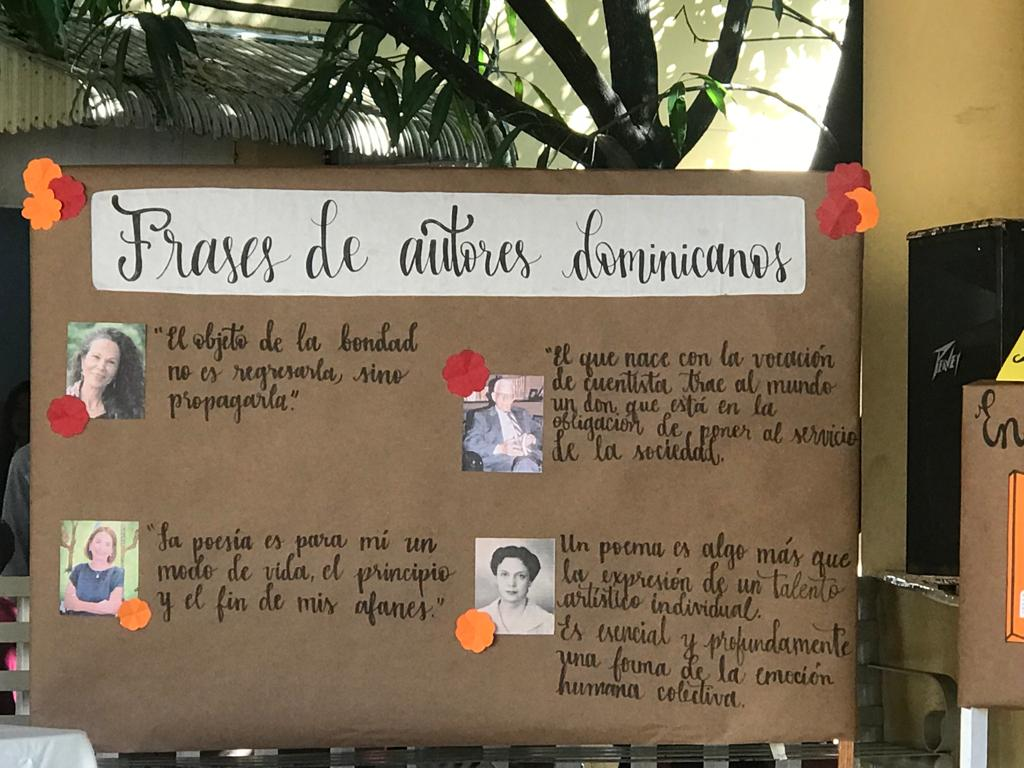 Frases de autores dominicanos
"El objeto de la bondad
no es regresarla, sino
propagarla."
"El que nace con la vocación
de cuentista trae al mundo
un don que está en la
obligación de poner al servicio
de la sociedad.
"La poesía es para mí un
modo de vida, el principio
y el fin de mis afanes."
Un poema es algo más que
la expresión de un talento
artístico individual.
Es esencial y profundamente
una forma de la emoción
humana colectiva.
Peavey
En